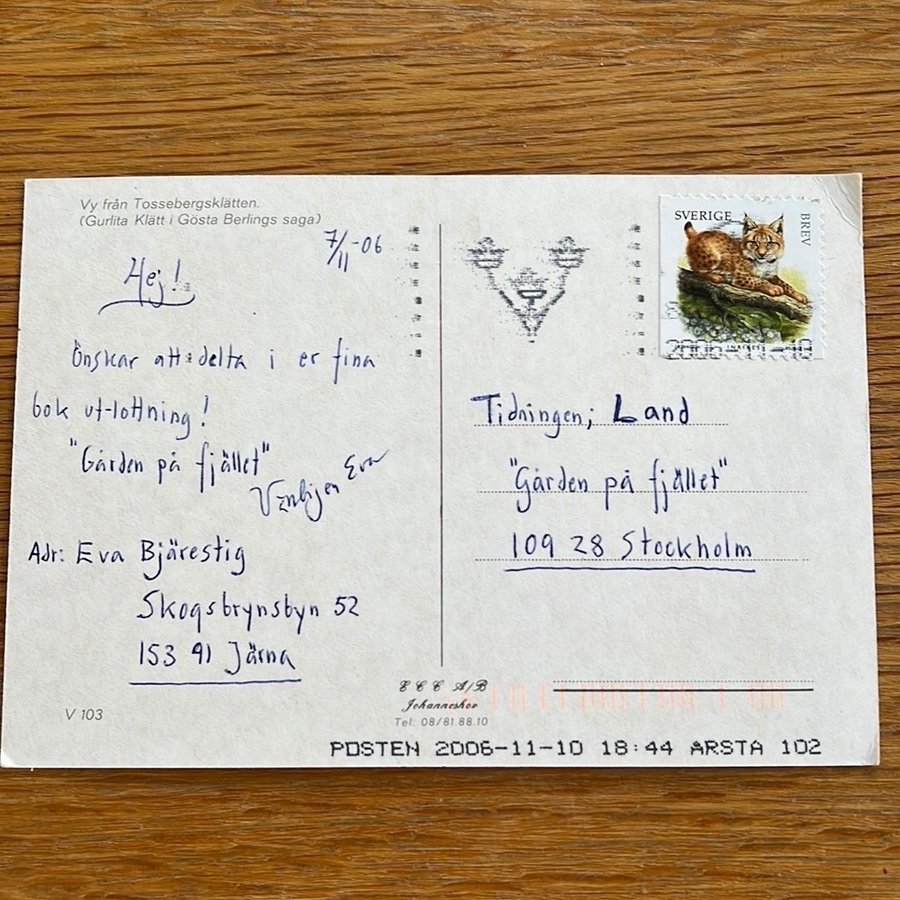 Vy från Tossebergsklätten.
(Gurlita Klätt i Gösta Berlings saga)
7/11-06
Hej!
Önskar att delta i er fina
bok ut-lottning!
"Gården på fjället"
Vänligen Eva
Adr: Eva Bjärestig
Skogsbrynsbyn 52
153 91 Järna
V 103
SVERIGE
BREV
2006-11-10
Tidningen; Land
"Gården på fjället"
109 28 Stockholm
ECC A/B
Johanneshov
Tel. 08/81.88.10
POSTEN 2006-11-10 18:44 ARSTA 102